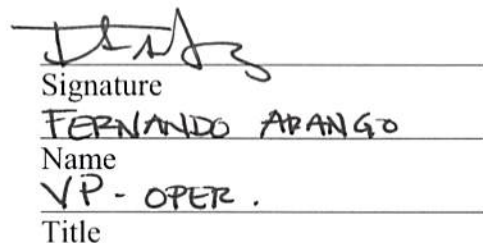 Signature
FERNANDO ARANGO
Name
VP - OPER.
Title